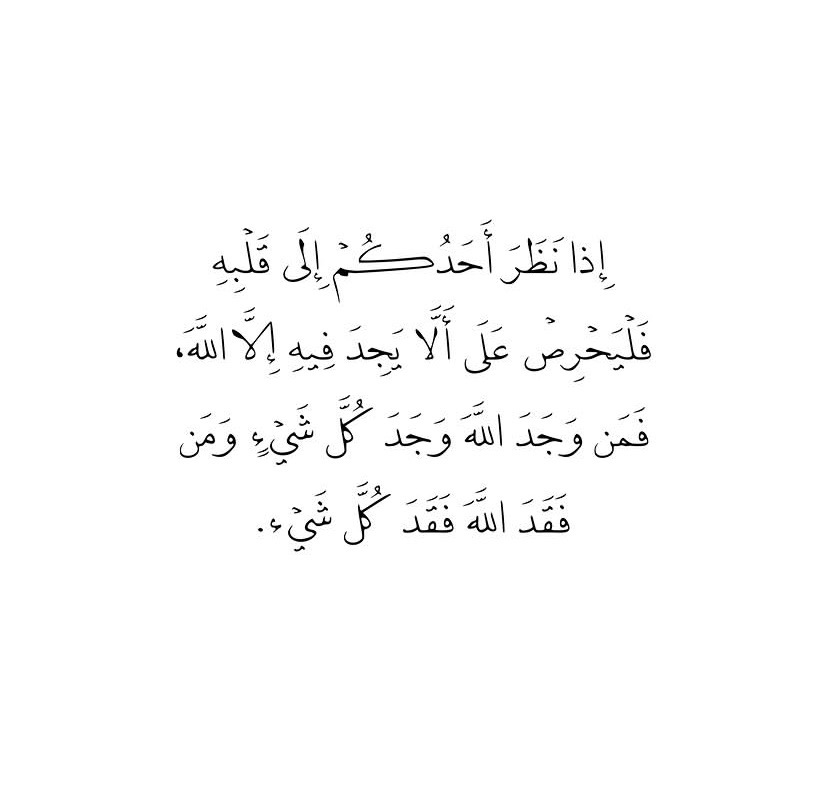 إِذا نَظَرَ أَحَدُكُمْ إِلَى قَلْبِهِ
فَلْيَحْرِصْ عَلَى أَلَّا يَجِدَ فِيهِ إِلَّا اللَّهَ،
فَمَن وَجَدَ اللَّهَ وَجَدَ كُلَّ شَيْءٍ وَمَن
فَقَدَ اللَّهَ فَقَدَ كُلَّ شَيْء.